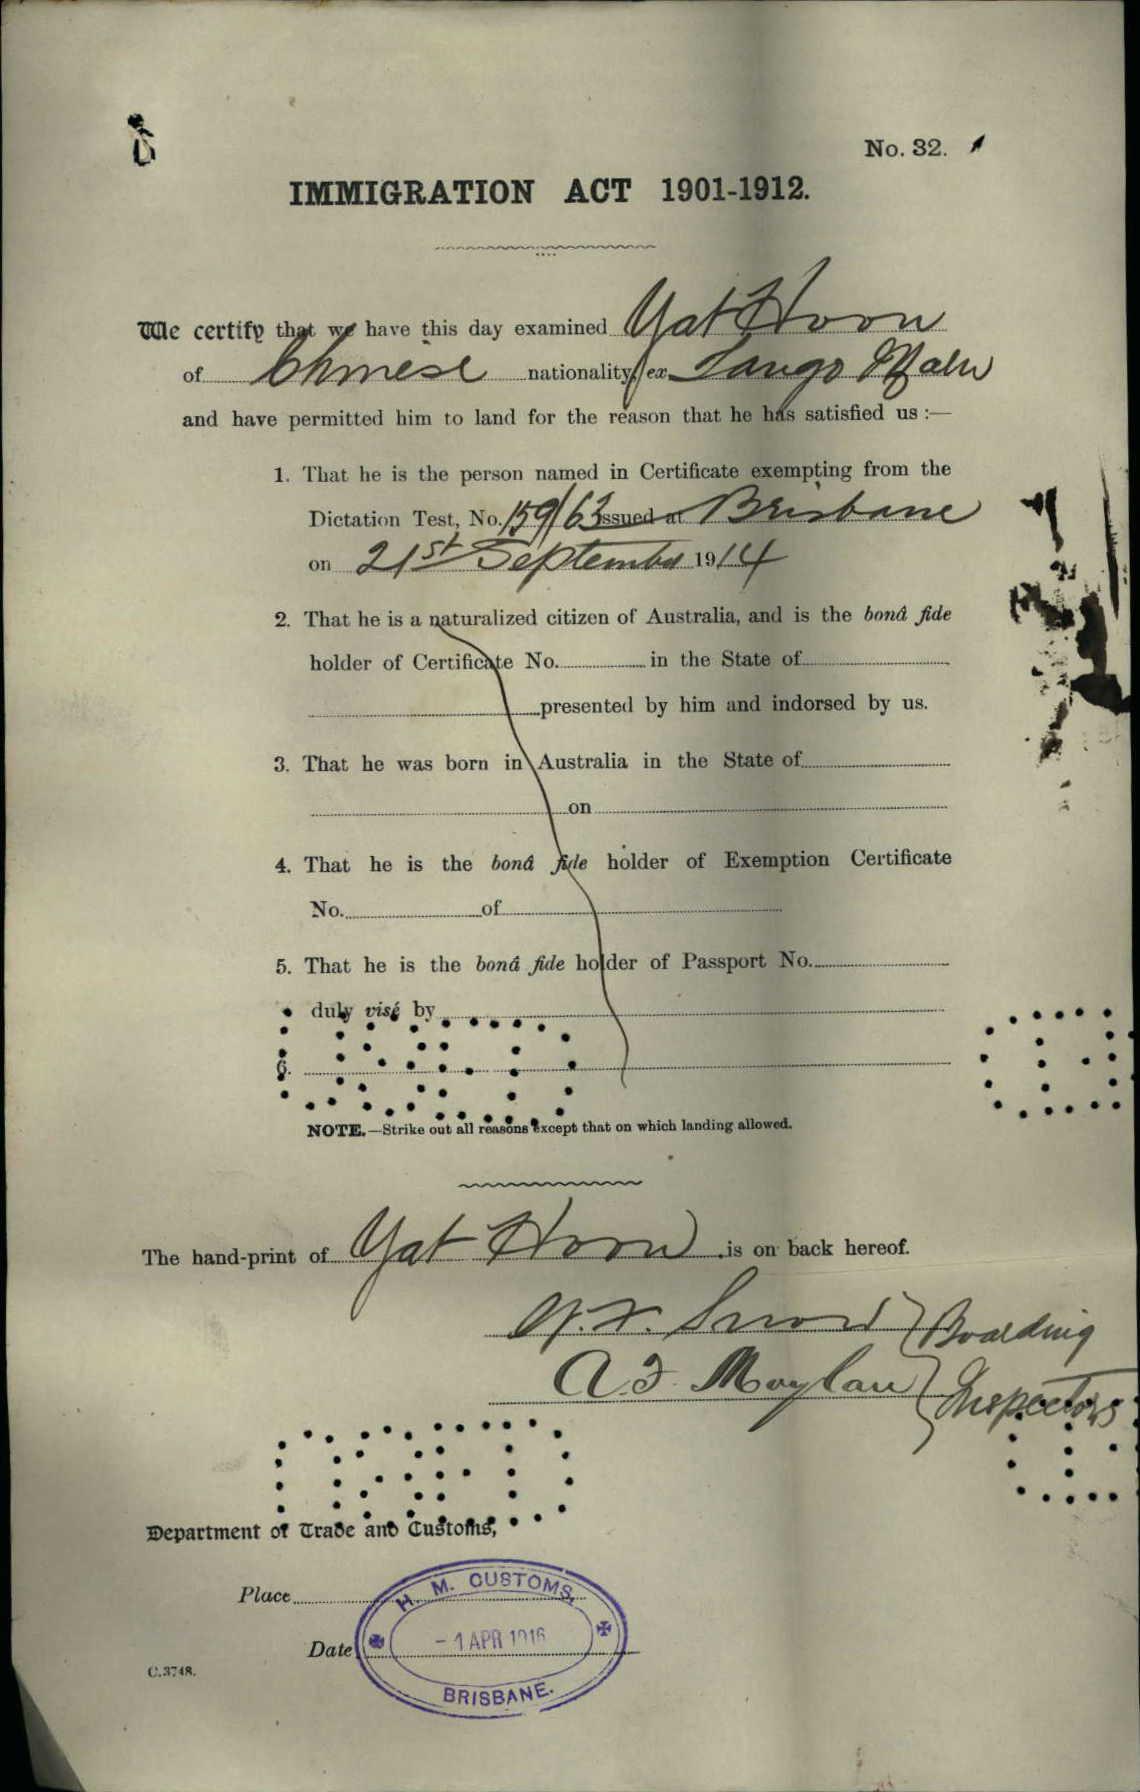 No. 32.
IMMIGRATION ACT 1901-1912.
We certify that we have this day examined Yat Hoon
of Chinese nationality, ex Tango Maru
and have permitted him to land for the reason that he has satisfied us :—
1. That he is the person named in Certificate exempting from the
Dictation Test, No. 159/63 issued at Brisbane
on 21st September 1914
2. That he is a naturalized citizen of Australia, and is the bonâ fide
holder of Certificate No. in the State of
presented by him and indorsed by us.
3. That he was born in Australia in the State of
on
4. That he is the bonâ fide holder of Exemption Certificate
No. of
5. That he is the bonâ fide holder of Passport No.
duly visé by
6.
NOTE.—Strike out all reasons except that on which landing allowed.
The hand-print of Yat Hoon is on back hereof.
Snow } Boarding
A.F. Moylan } Inspectors
Department of Trade and Customs,
Place
Date
H. M. CUSTOMS,
- 1 APR 1916
BRISBANE.
C.3748.